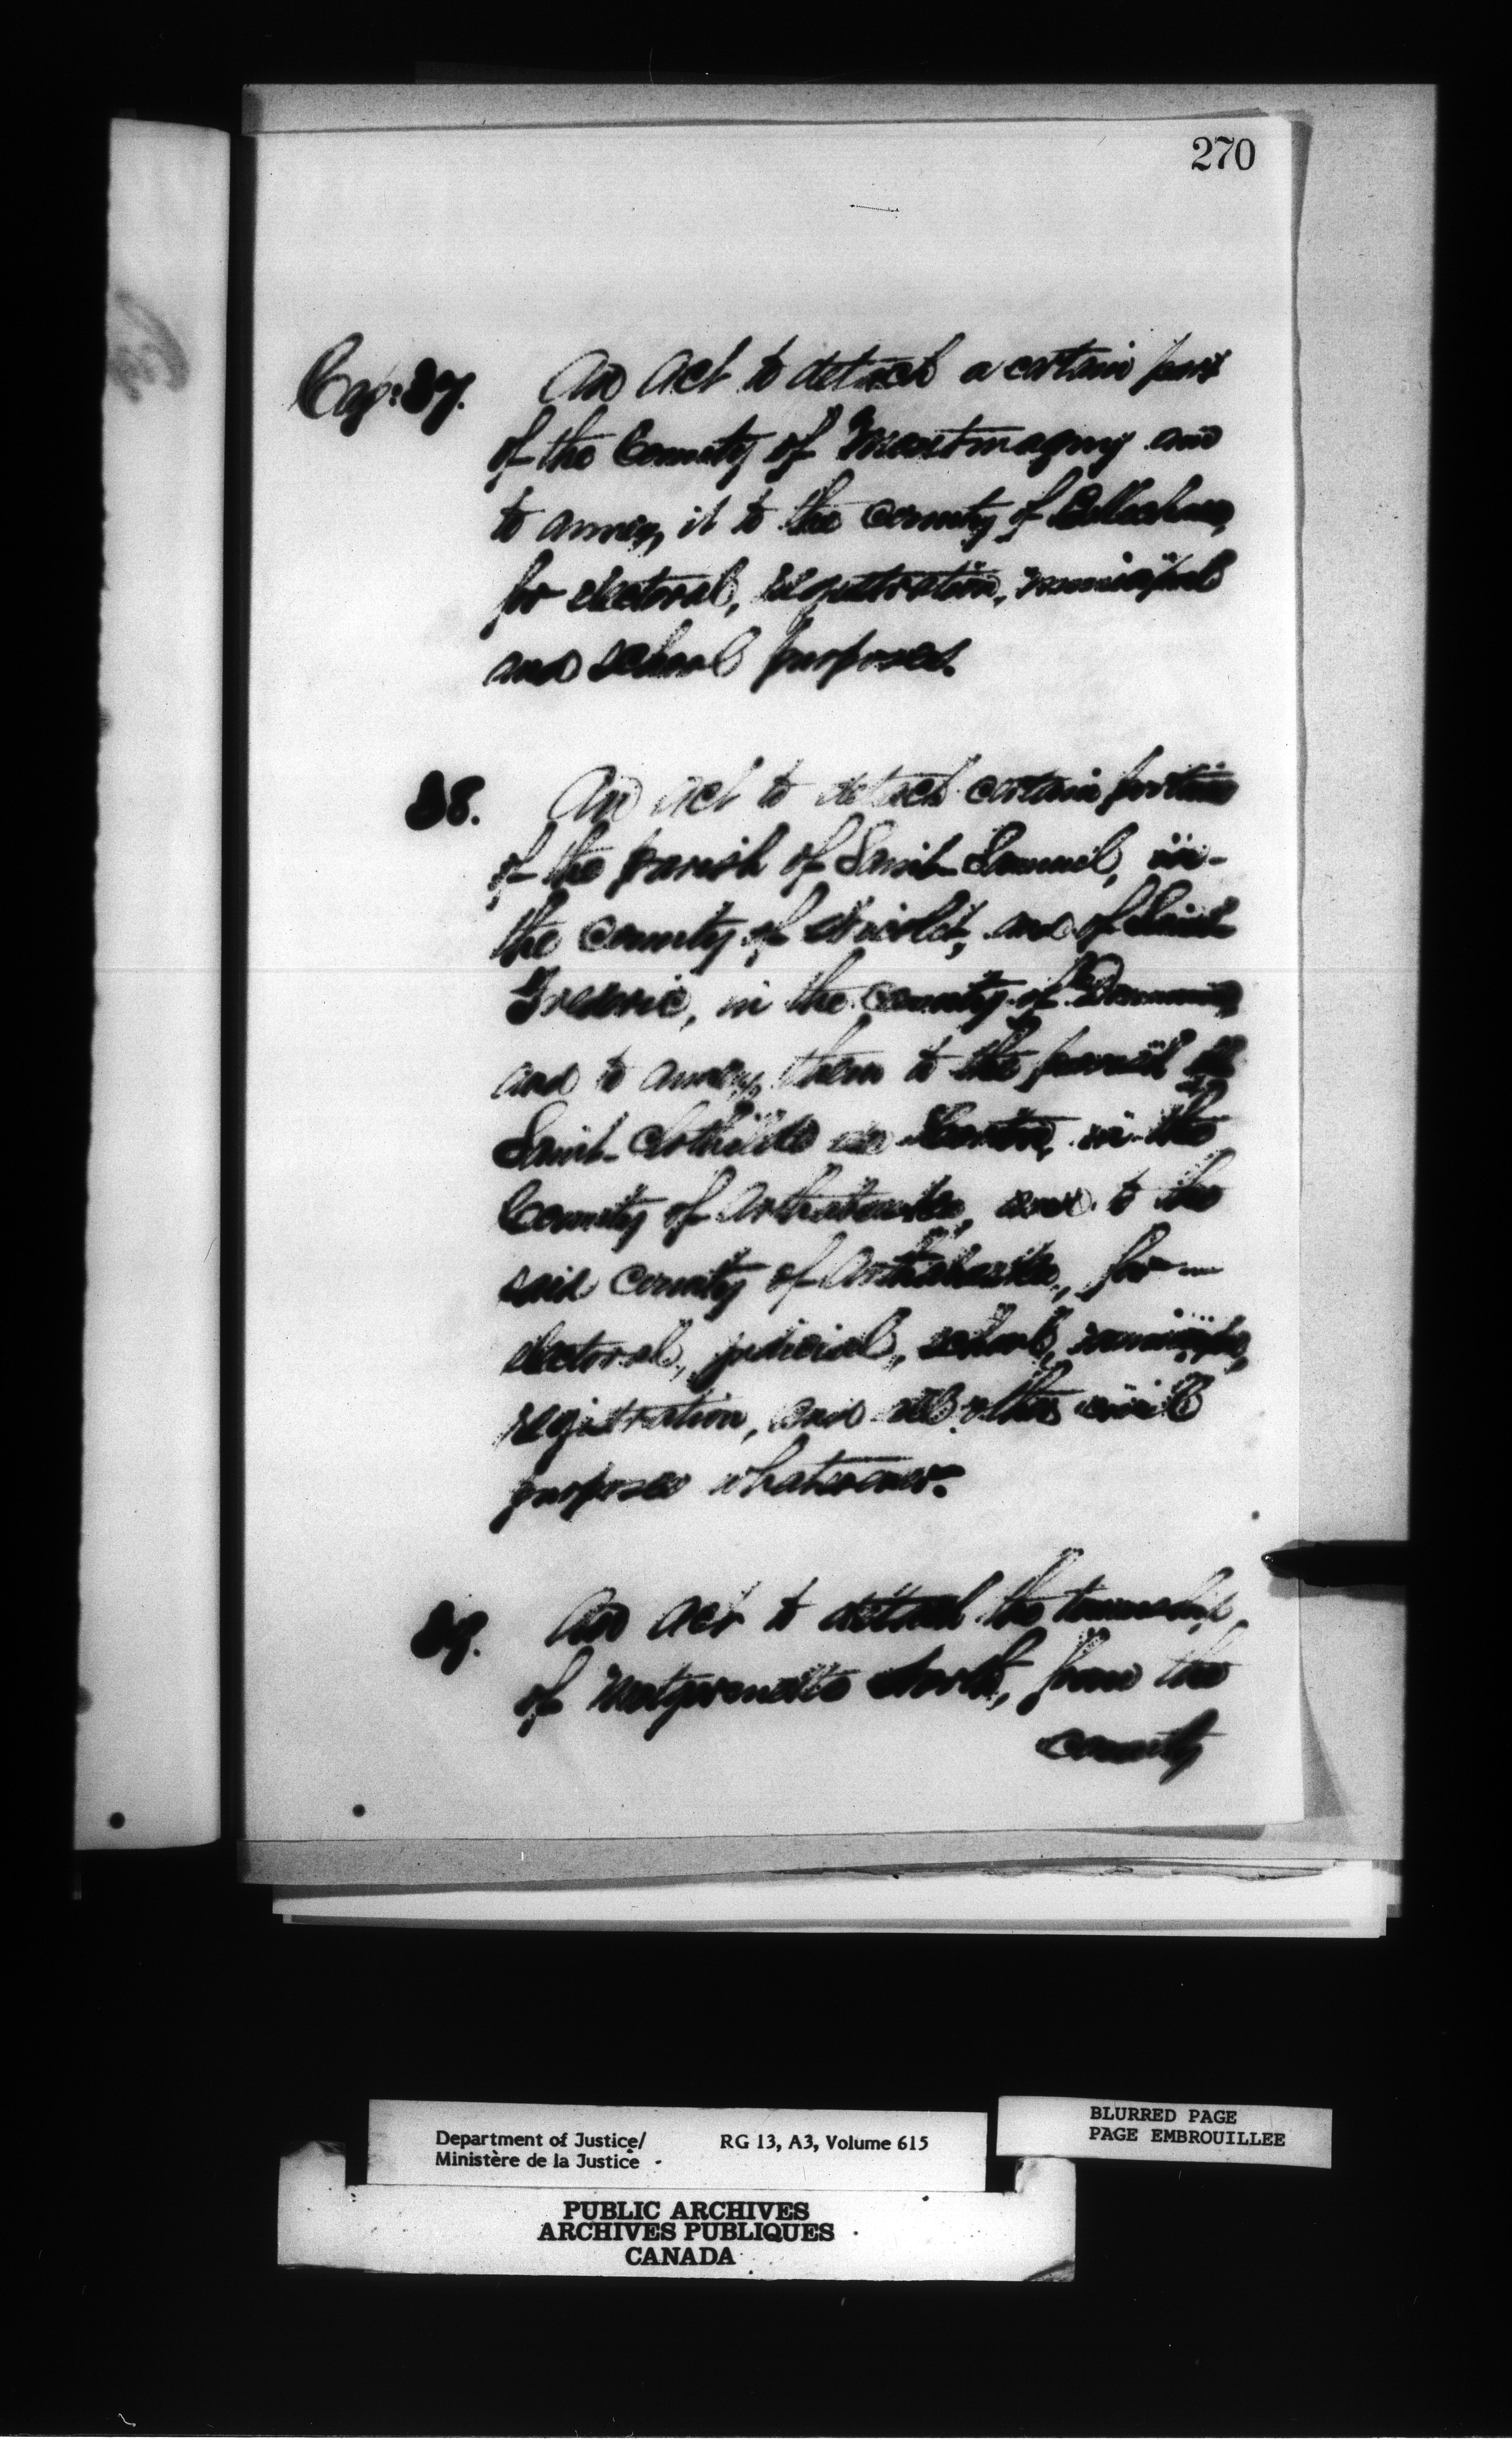 270
Cap: 37. An Act to detach a certain part
of the County of Montmagny and
to annex it to the County of Bellechasse,
for electoral, registration, municipal
and school purposes.
38. An Act to detach certain portions
of the parish of Saint Samuel, in
the County of Nicolet, and of Saint
Frederic, in the County of Drummond
and to annex them to the parish of
Saint Clothilde de Horton, in the
County of Arthabaska, and to the
said County of Arthabaska, for
electoral, judicial, school, municipal,
registration, and all other civil
purposes whatsoever.
39. An Act to detach the township
of Metgermette North, from the
County
Department of Justice/ RG 13, A3, Volume 615
Ministère de la Justice
BLURRED PAGE
PAGE EMBROUILLEE
PUBLIC ARCHIVES
ARCHIVES PUBLIQUES
CANADA